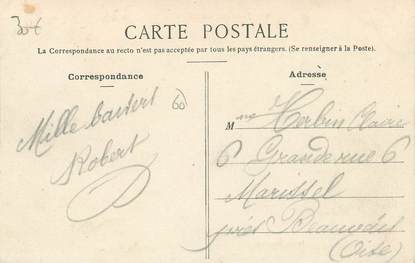 30€
CARTE POSTALE
La Correspondance au recto n'est pas acceptée par tous les pays étrangers. (Se renseigner à la Poste).
Correspondance
Adresse
Mille baisers
Robert
60
Mme Herbin Claire
6 Grande rue 6
Marissel
près Beauvais
(Oise)